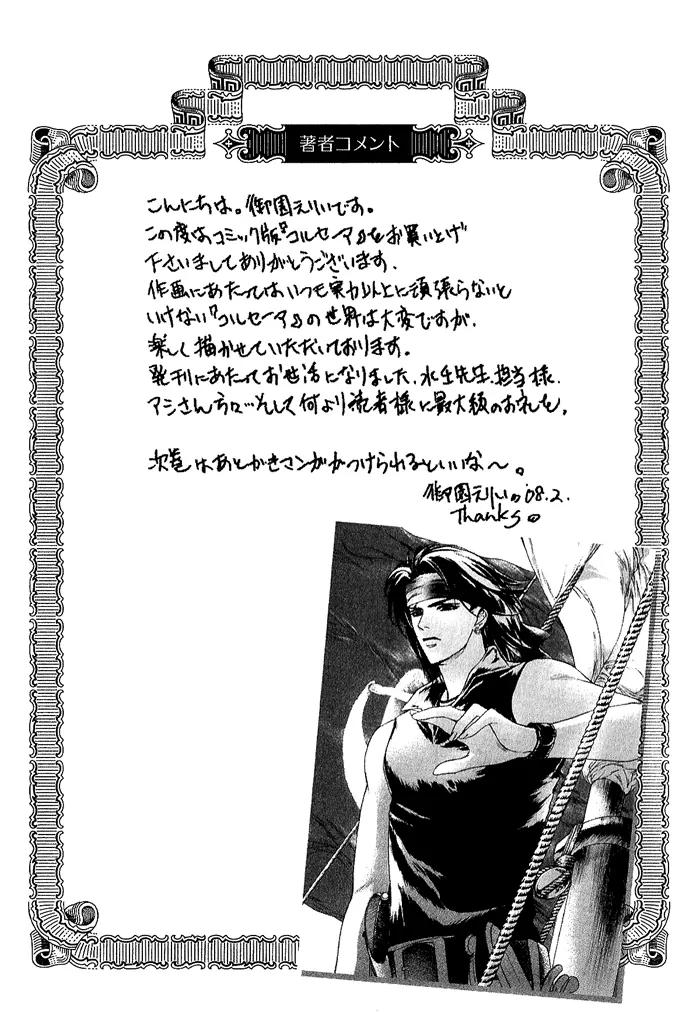 著者コメント
こんにちは。御園えりいです。
この度はコミック版『コルセーア』をお買い上げ
下さいましてありがとうございます。
作画にあたってはいつも実力以上に頑張らないと
いけない『コルセーア』の世界は大変ですが、
楽しく描かせていただいております。
発刊にあたってお世話になりました、水壬先生、担当様、
アシさん方々…そして何より読者様に最大級のお礼を。
次巻はあとがきマンガがつけられるといいな〜。
御園えりい '08.2.
Thanks